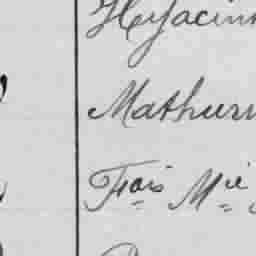 Hyacin
Mathurin
Frois Mie